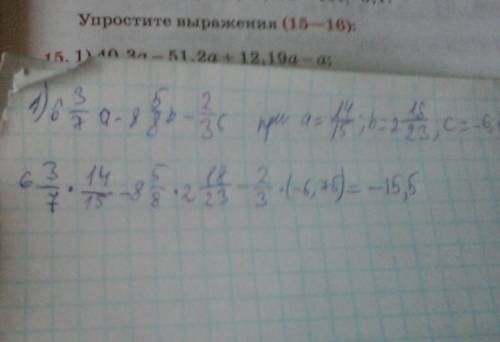 Упростите выражения (15—16):
15. 1) 40,3a – 51,2a + 12,19a – a;
1) 6 3/7 a - 8 5/8 b - 2/3 c при a = 14/15; b = 2 18/23, c = -6,
6 3/7 · 14/15 - 8 5/8 · 2 18/23 - 2/3 · (-6,75) = -15,5